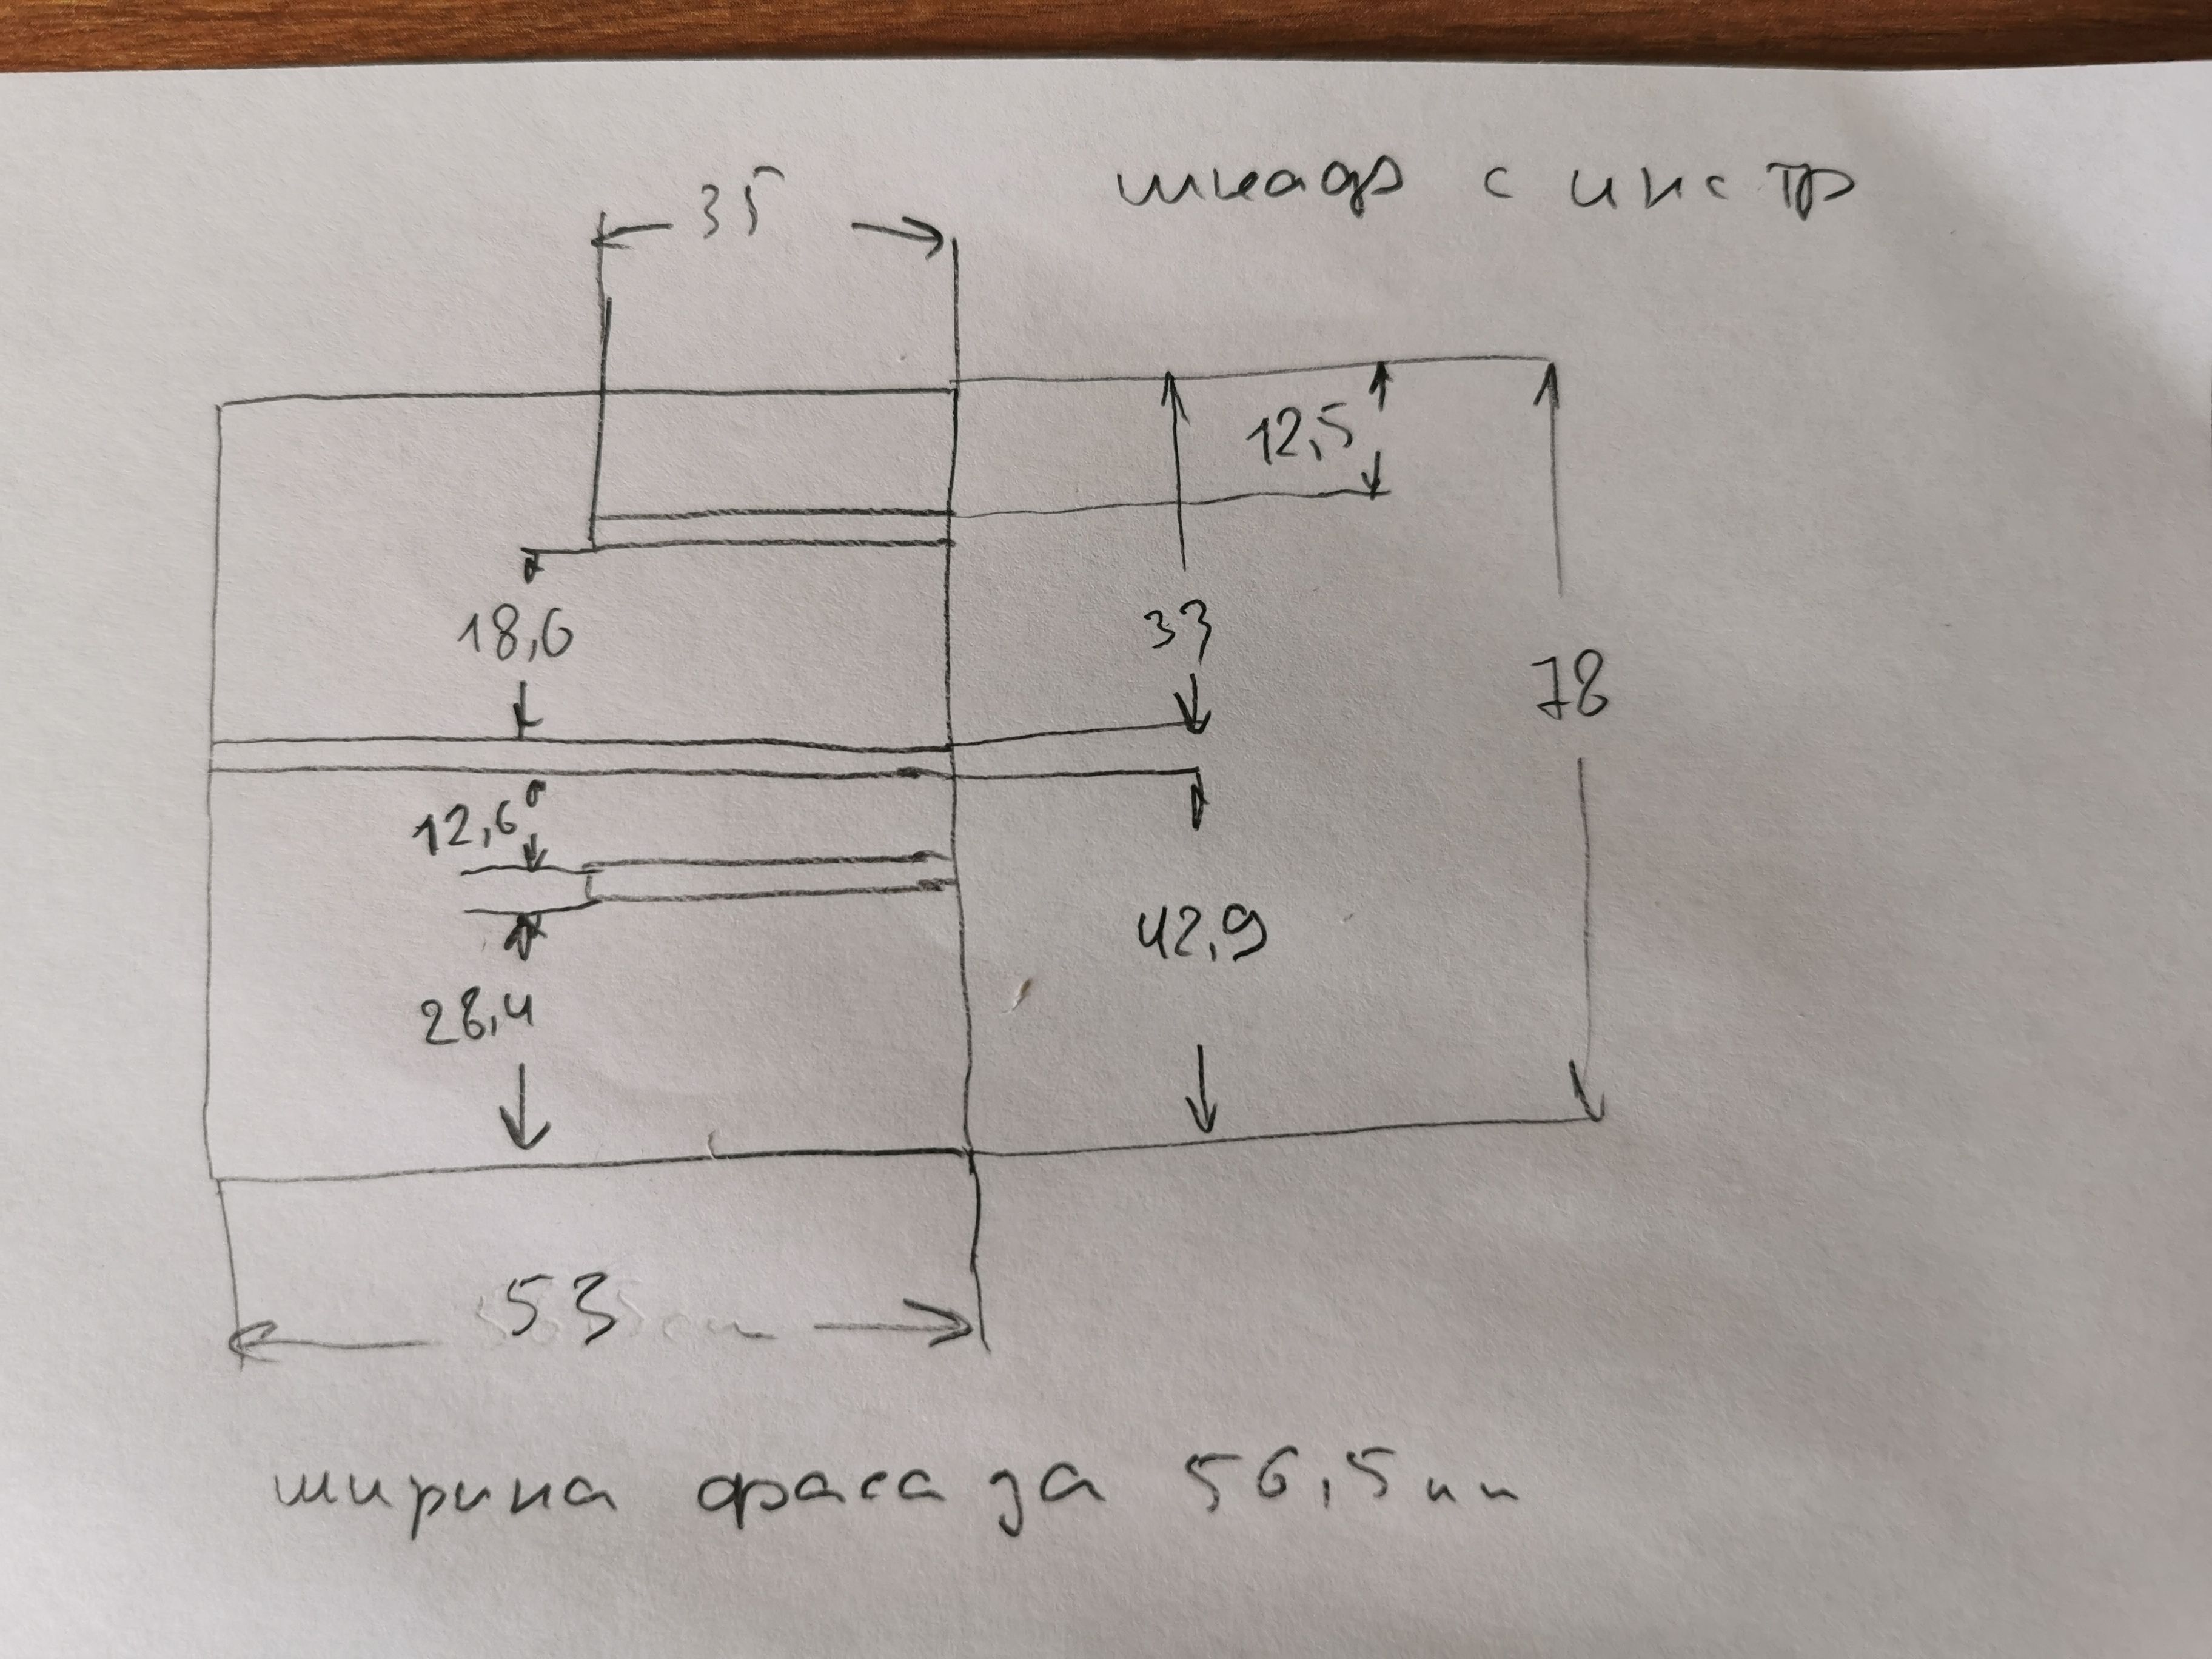 35
шкаф с инстр
12,5
18,6
33
78
12,6
42,9
28,4
53
ширина фасада 56,5мм